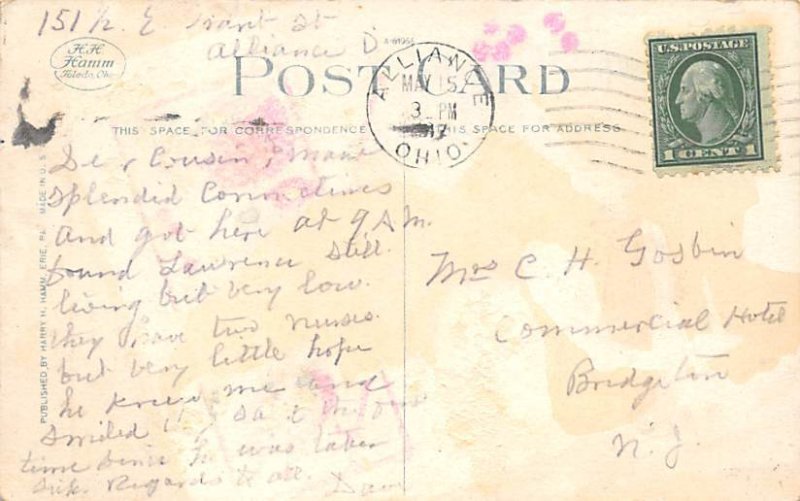 151 1/2 E Grant St
Alliance O
A-61955
H.H. Hamm
Toledo, O.
POST CARD
ALLIANCE
MAY 15
3 PM
OHIO.
U.S. POSTAGE
1 CENT 1
THIS SPACE FOR CORRESPONDENCE
THIS SPACE FOR ADDRESS
PUBLISHED BY HARRY H. HAMM, ERIE, PA. MADE IN U.S.
Dear Cousin; Made
splendid Connections
and got here at 9 A.M.
found Lawrence still
living but very low.
they have two nurses.
but very little hope
he knew me and
smiled
time since he was taken
sick. Regards to all.
Mrs C. H. Gosbin
Commercial Hotel
Bridgeton
N. J.